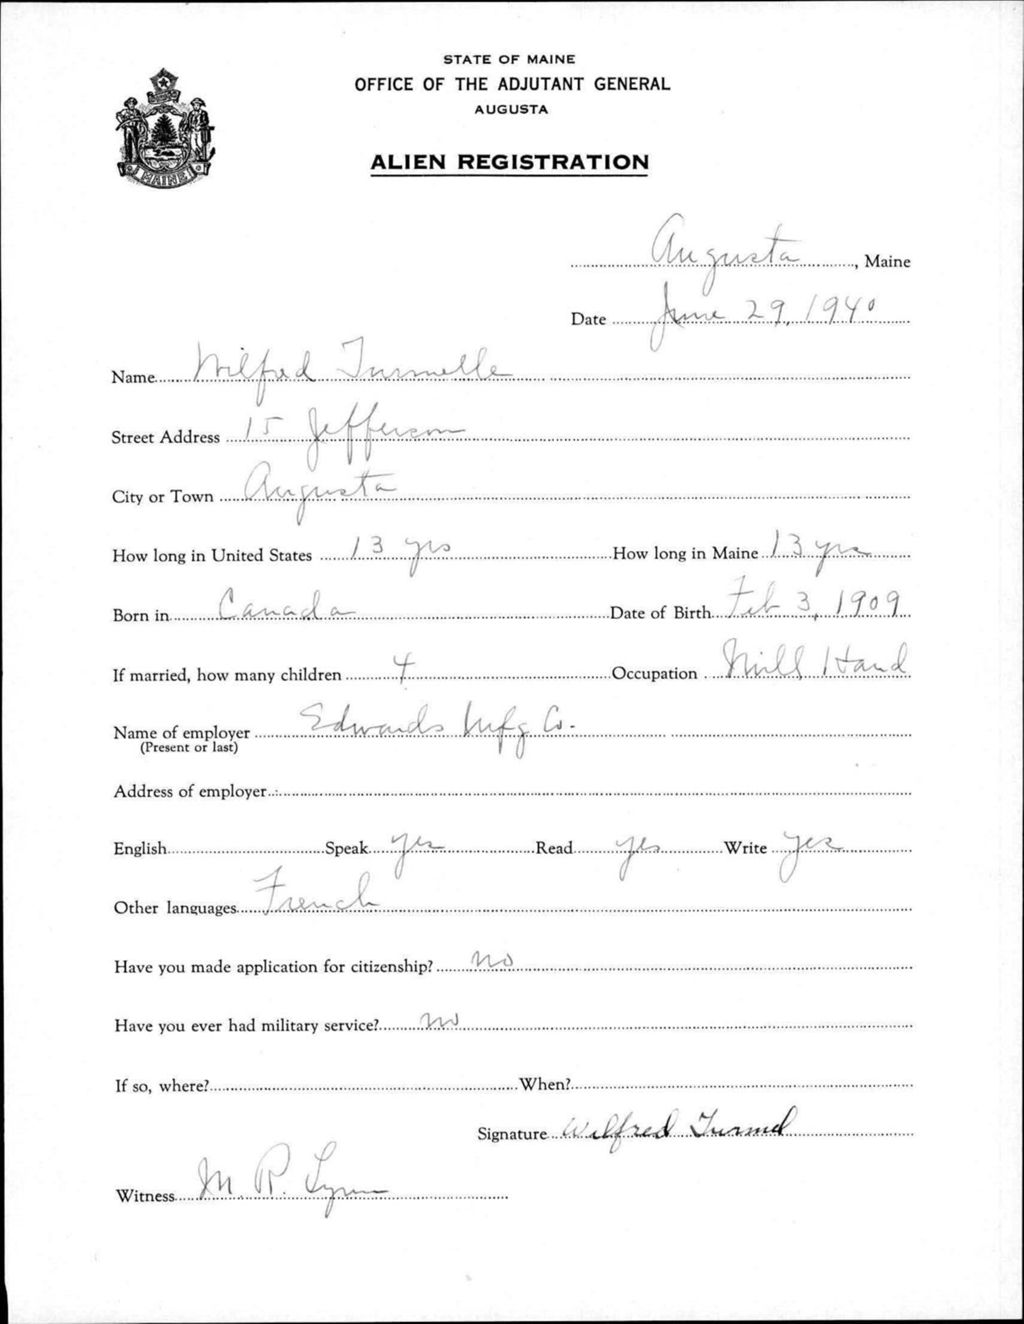 STATE OF MAINE
OFFICE OF THE ADJUTANT GENERAL
AUGUSTA
ALIEN REGISTRATION
MAINE
Augusta, Maine
Date June 29, 1940
Name Wilfred Turmelle
Street Address 15 Jefferson
City or Town Augusta
How long in United States 13 yrs How long in Maine 13 yrs
Born in Canada Date of Birth Feb 3, 1909
If married, how many children 4 Occupation Mill Hand
Name of employer Edwards Mfg Co.
(Present or last)
Address of employer
English Speak yes Read yes Write yes
Other languages French
Have you made application for citizenship? no
Have you ever had military service? no
If so, where? When?
Signature Wilfred Turmel
Witness M R. Lynn